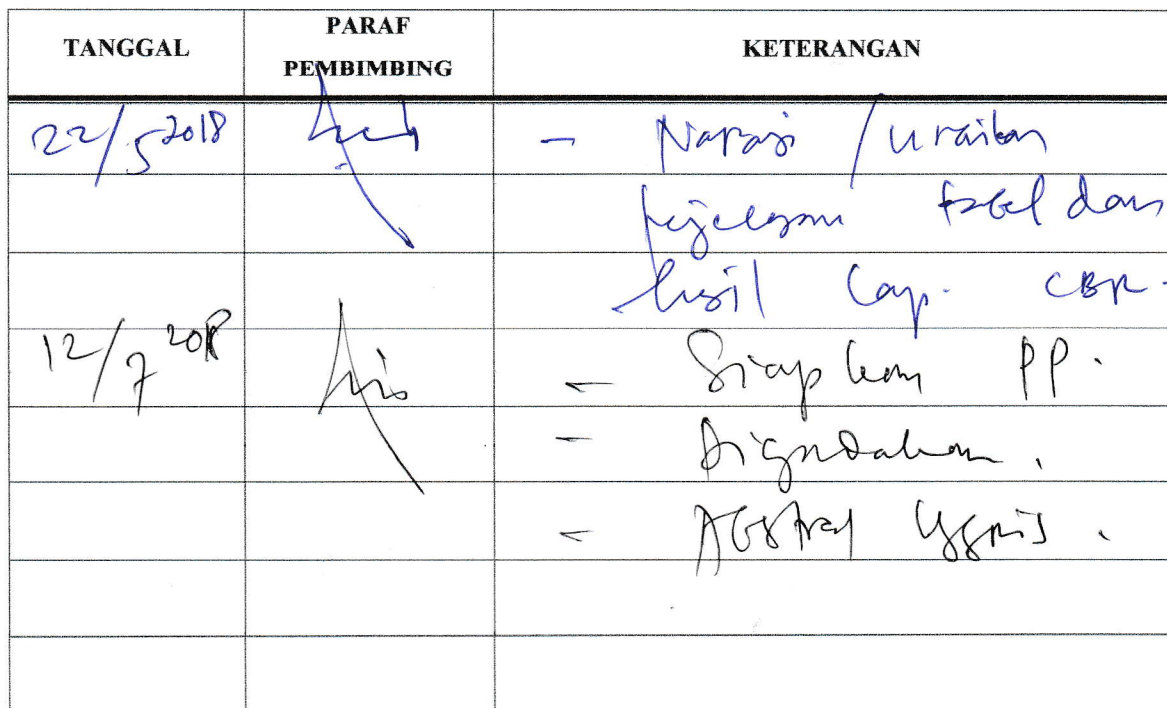 TANGGAL
PARAF
PEMBIMBING
KETERANGAN
22/5 2018
- Narasi / uraikan
penjelasan tabel dan
hasil Lap. CBR.
12/7 2018
- Siapkan PP.
- Digandakan.
- Abstrak Inggris.